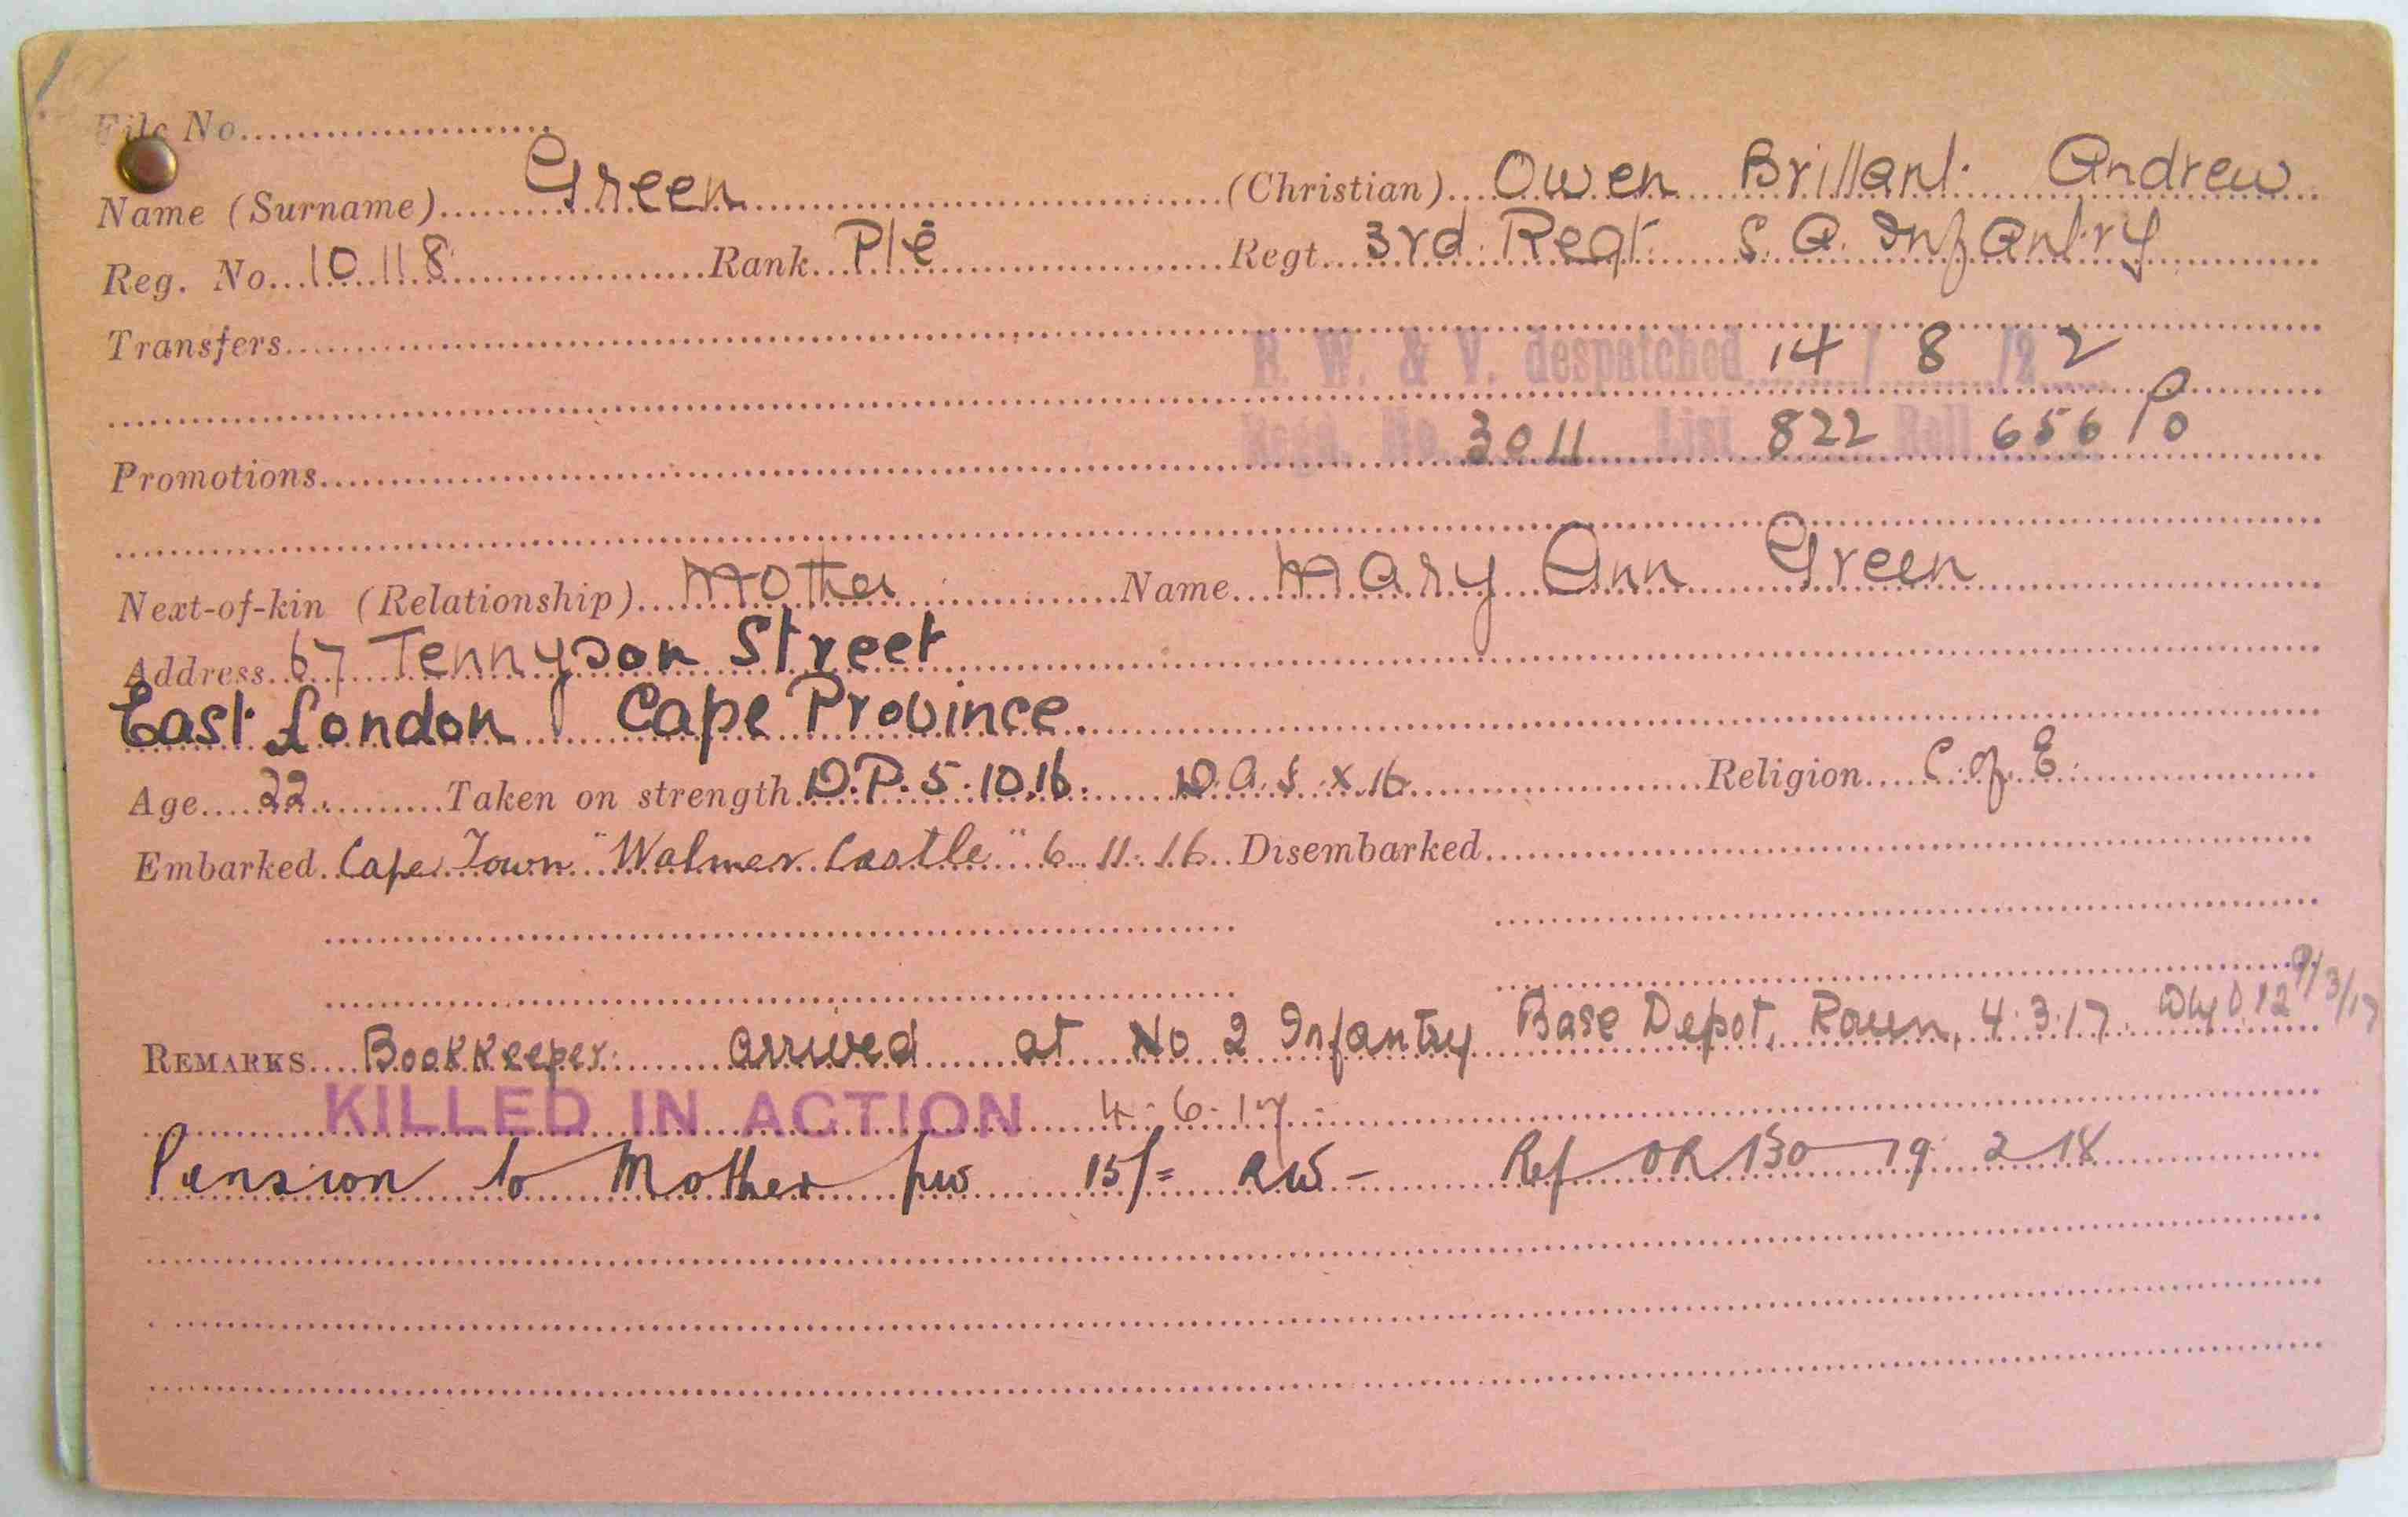 File No.
Name (Surname) Green (Christian) Owen Brillant Andrew
Reg. No. 10118 Rank Pte Regt. 3rd Regt. S. A. Infantry
Transfers
B. W. & V. despatched 14 / 8 /22
Regd. No. 3011 List 822 Roll 656
Promotions
Next-of-kin (Relationship) Mother Name Mary Ann Green
Address 67 Tennyson Street
East London Cape Province.
Age 22. Taken on strength D.P. 5.10.16. Religion C. of E.
Embarked Cape Town "Walmer Castle" 6.11.16. Disembarked
REMARKS Bookkeeper. arrived at No 2 Infantry Base Depot, Rouen, 4.3.17. 9/3/17
KILLED IN ACTION 4.6.17.
Pension to Mother pw 15/= RW - Ref OR 130 19 2 18